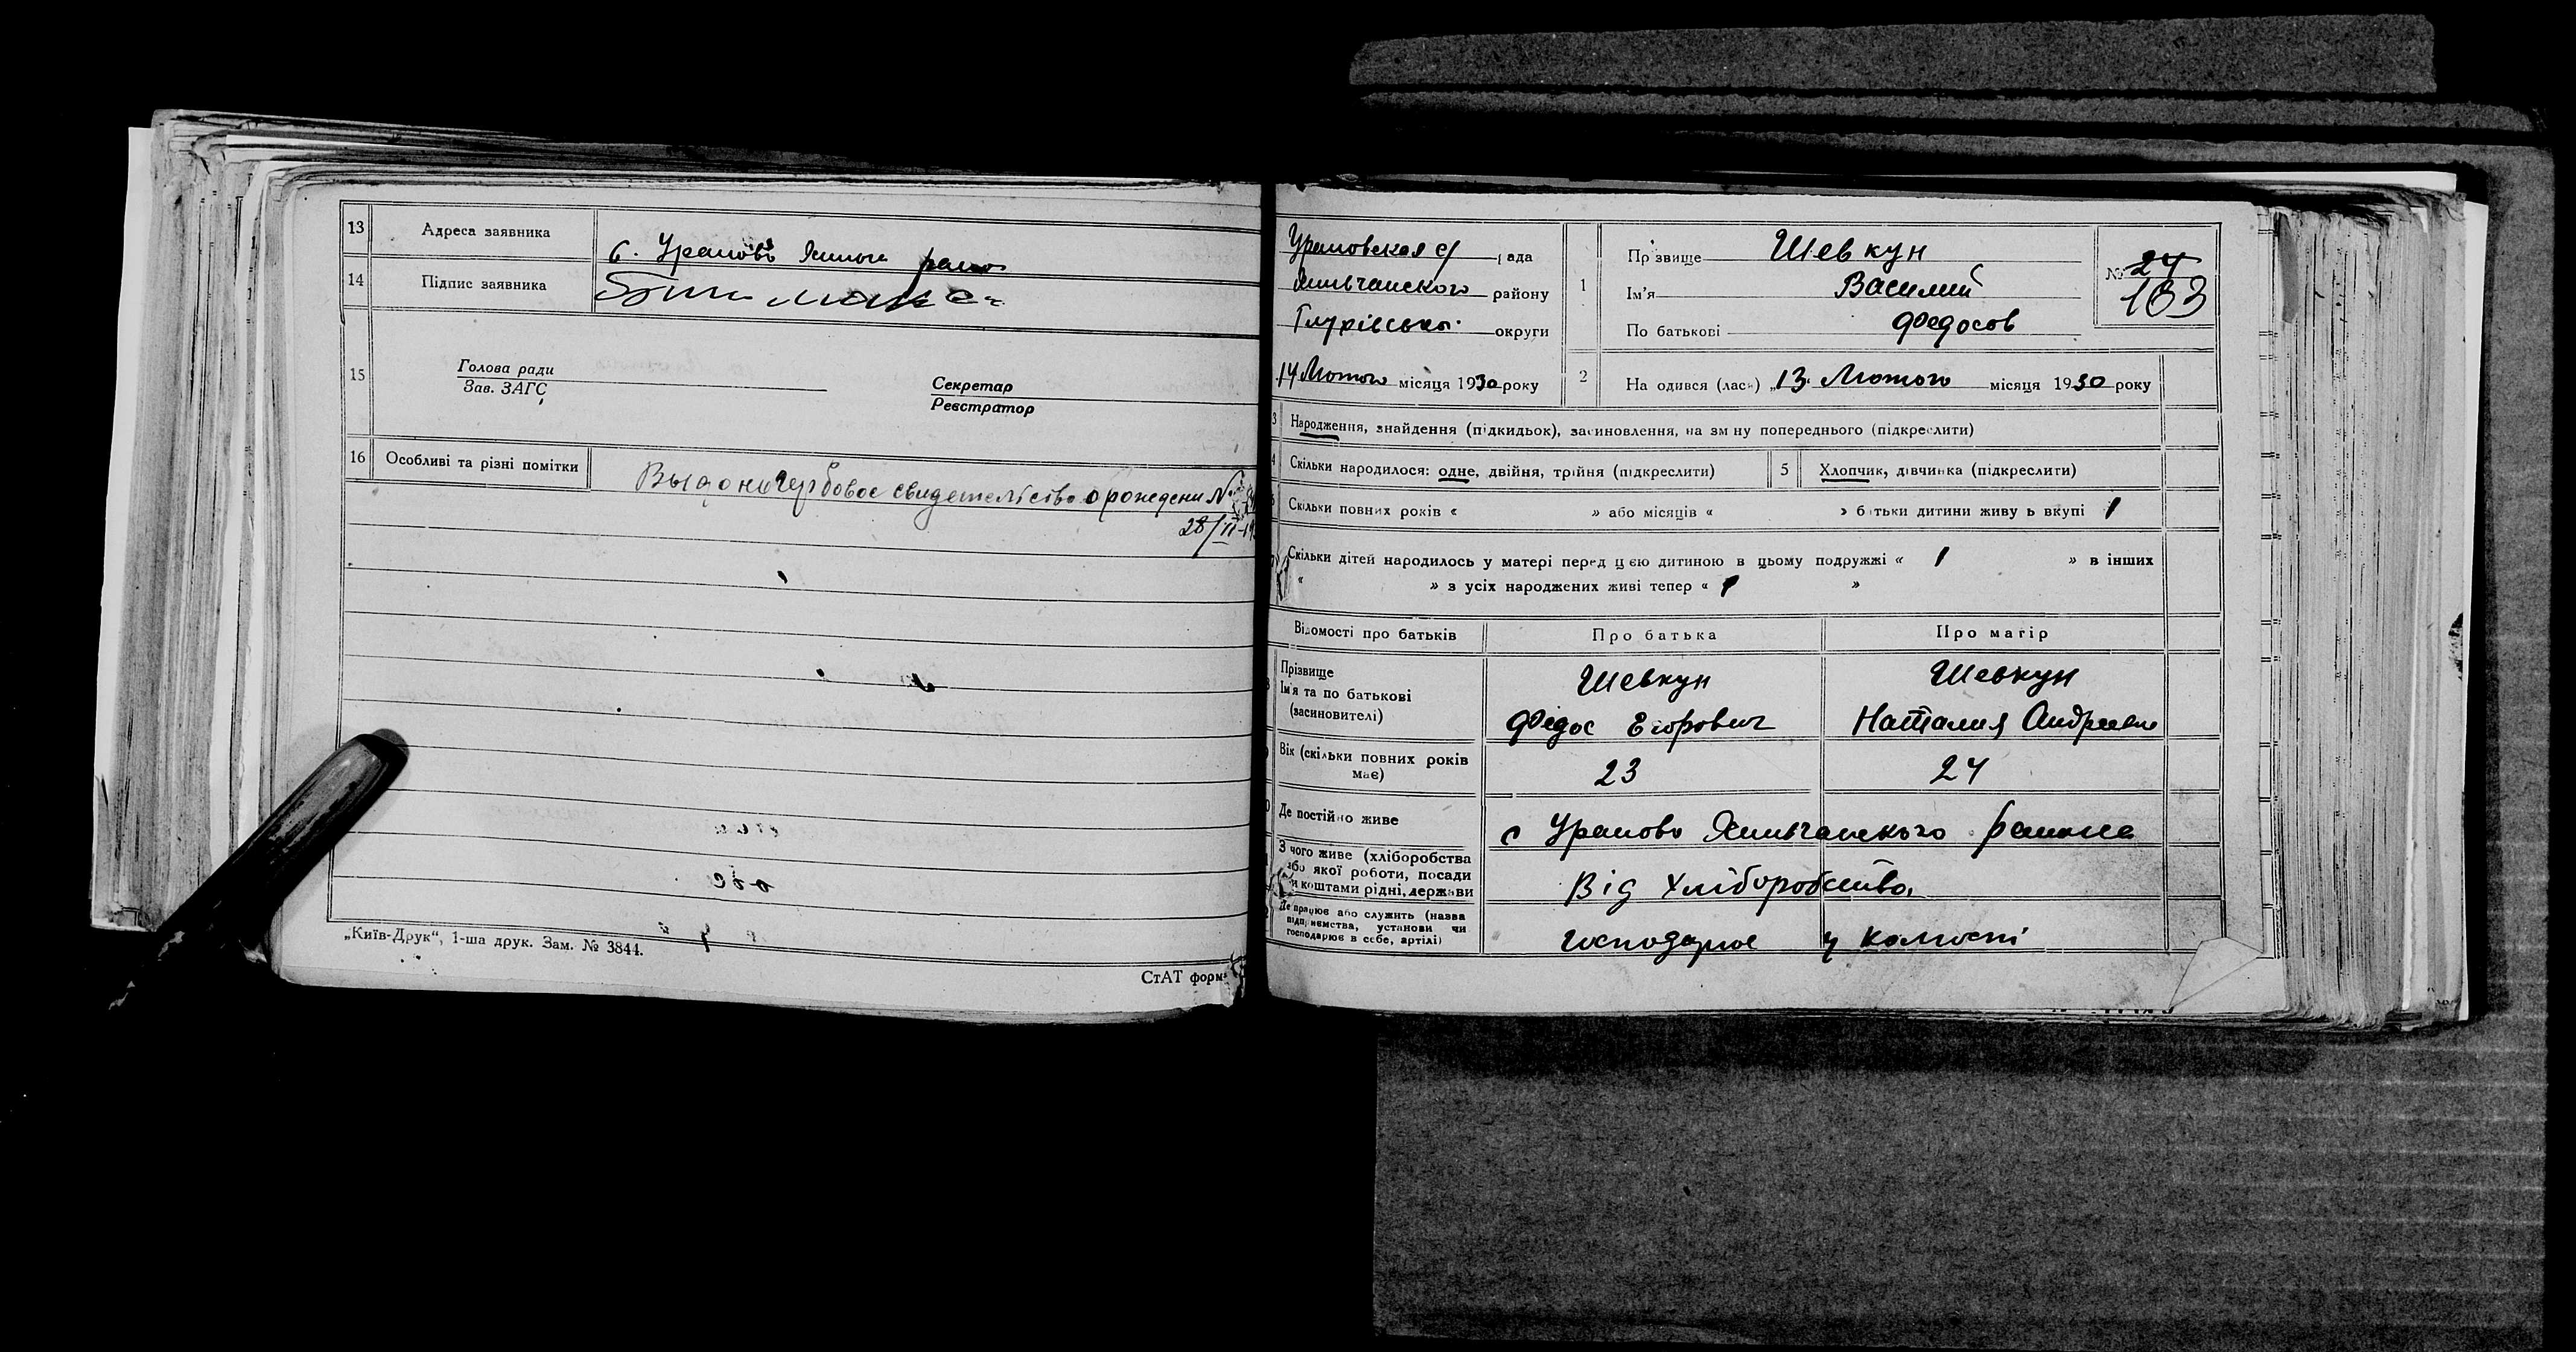 13 Адреса заявника
с. Уралово
14 Підпис заявника
15
Голова ради
Зав. ЗАГС
Секретар
Реєстратор
16 Особливі та різні помітки
Выдано гербовое свидетельство о рождени №
28/II-19
„Київ-Друк“, 1-ша друк. Зам. № 3844.
СтАТ форм
Ураловская с/ рада
району
Глухівської округи
14 Лютого місяця 1930 року
1
Прізвище Шевкун
Ім'я Василий
По батькові Федосов
№ 24
183
2 На одився (лась) „13. Лютого місяця 1930 року
3 Народження, знайдення (підкидьок), засиновлення, на зміну попереднього (підкреслити)
4 Скільки народилося: одне, двійня, трійня (підкреслити)
5 Хлопчик, дівчинка (підкреслити)
Скільки повних років « » або місяців « » батьки дитини живуть вкупі 1
Скільки дітей народилось у матері перед цією дитиною в цьому подружжі « 1 » в інших
« » з усіх народжених живі тепер « 1 »
Відомості про батьків
Про батька
Про матір
Прізвище
Ім'я та по батькові
(засиновителі)
Шевкун
Федос Егорович
Шевкун
Наталия Андреевн
Вік (скільки повних років
має)
23
24
Де постійно живе
с Уралово
З чого живе (хліборобства
або якої роботи, посади
чи коштами рідні, держави
Від хліборобства
Де працює або служить (назва
підприємства, установи чи
господарює в себе, артілі)
господарює у